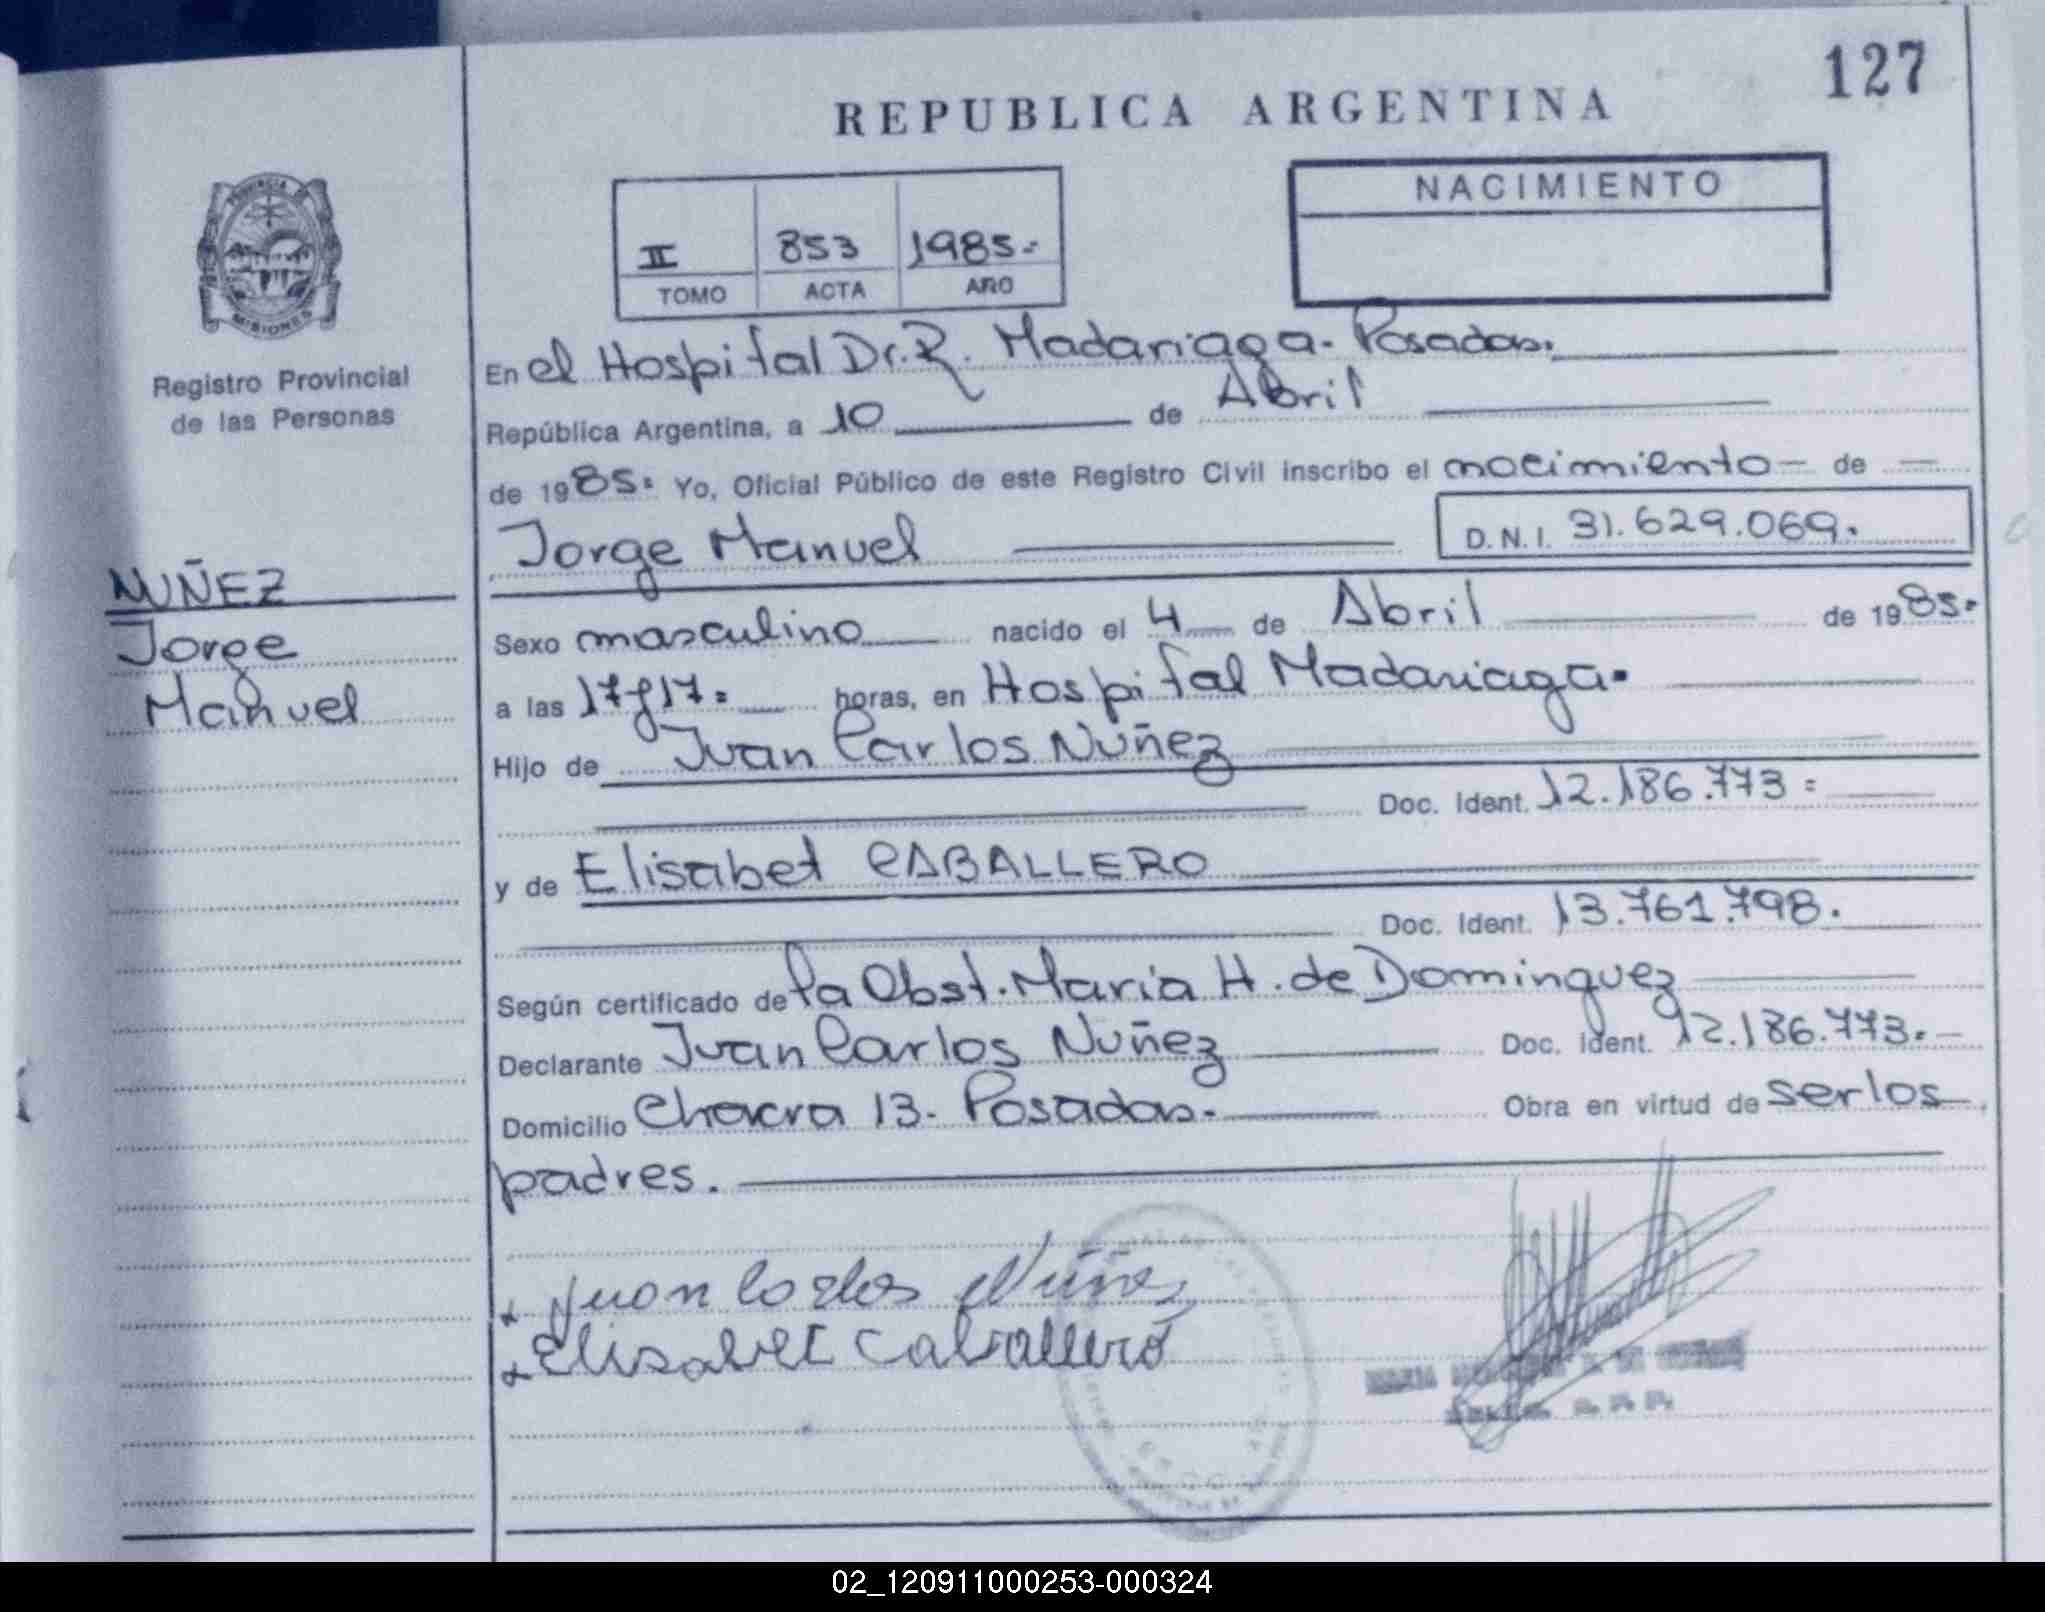 127
REPUBLICA ARGENTINA
NACIMIENTO
II 853 1985.-
TOMO ACTA AÑO
PROVINCIA DE
MISIONES
Registro Provincial
de las Personas
NUÑEZ
Jorge
Manuel
En el Hospital Dr. R. Madariaga. Posadas.
República Argentina, a 10 de Abril
de 1985. Yo, Oficial Público de este Registro Civil inscribo el nacimiento - de -
Jorge Manuel D.N.I. 31.629.069.
Sexo masculino nacido el 4 de Abril de 1985.
a las 17 y 17= horas, en Hospital Madariaga.
Hijo de Juan Carlos Nuñez
Doc. Ident. 12.186.773=
y de Elisabet CABALLERO
Doc. Ident. 13.761.798.
Según certificado de la Obst. Maria H. de Dominguez
Declarante Juan Carlos Nuñez Doc. Ident. 12.186.773.-
Domicilio Chacra 13- Posadas.- Obra en virtud de ser los
padres.
Juan Carlos Nuñez
Elisabet Caballero
MARIA
02_120911000253-000324